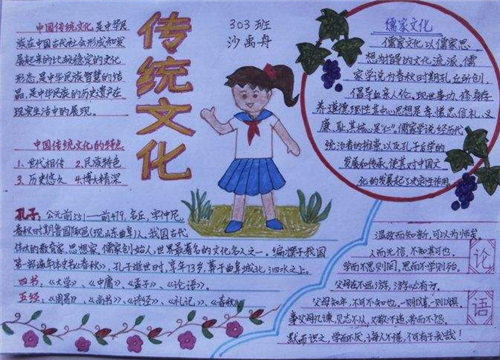 传统文化
303班
沙禹舟
中国传统文化是中华民
族在中国古代社会形成和发
展起来的比较稳定的文化
形态,是中华民族智慧的结
晶,是中华民族的历史遗产在
现实生活中的展现。
中国传统文化的特点
1.世代相传 2.民族特色
3.历史悠久 4.博大精深
儒家文化
儒家文化以儒家思
想为指导的文化流派,儒
家学说为春秋时期孔丘所创,
倡导血亲人伦、现世事功、修身存
养、道德理性,其中心思想是孝、悌、忠、信、礼、义、
廉、耻,其核心是"仁"。儒家学说经历代
统治者的推崇,以及孔子后学的
发展和传承,使其对中国文
化的发展起了决定性作用
孔子:公元前551—前479,名丘,字仲尼
春秋时期鲁国陬邑(现山东曲阜)人,我国古代
伟大的教育家,思想家,儒家创始人,世界最著名的文化名人之一。编撰了我国
第一部编年体史书《春秋》,孔子逝世时,享年73岁,葬于曲阜城北,泗水之上。
四书:《大学》、《中庸》、《孟子》、《论语》。
五经:《周易》、《尚书》、《诗经》、《礼记》、《春秋》
论
语
温故而知新,可以为师矣
人而无信,不知其可也。
学而不思则罔,思而不学则殆。
父母在不远游,游必有方。
父母之年,不可不知也,一则以喜,一则以惧。
事父母几谏,见志不从,又敬不违,劳而不怨。
默而识之,学而不厌,诲人不倦,何有于我哉!